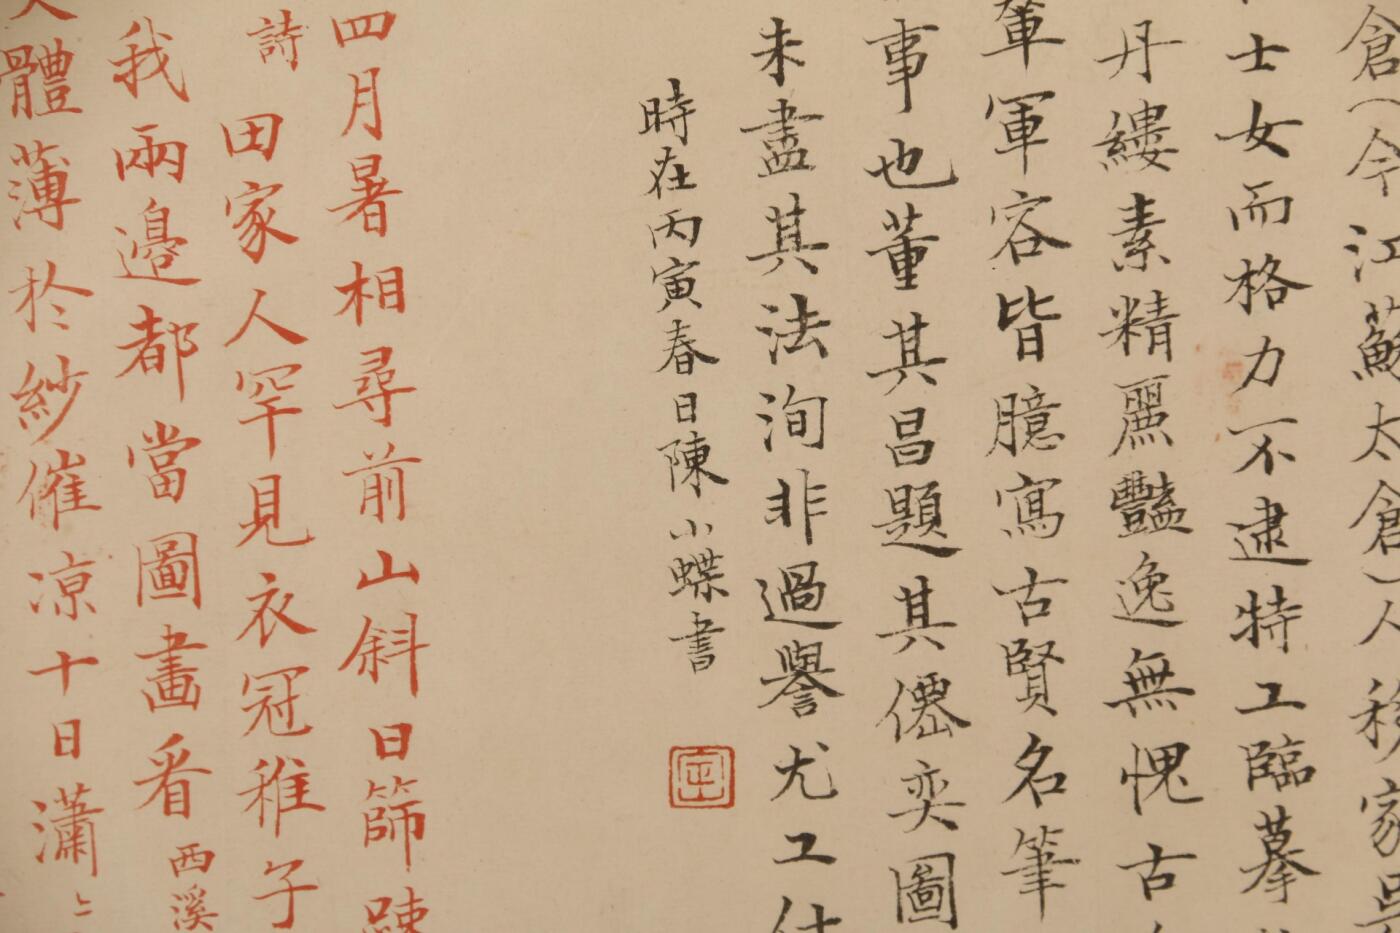 倉（今江蘇太倉）人移家吳
士女而格力不逮特工臨摹
丹縷素精麗豔逸無愧古
軍軍容皆臆寫古賢名筆
事也董其昌題其僊奕圖
未盡其法洵非過譽尤工仕
時在丙寅春日陳小蝶書
四月暑相尋前山斜日篩疎
詩　田家人罕見衣冠稚子
我兩邊都當圖畫看　西溪
體薄於紗催凉十日瀟〻